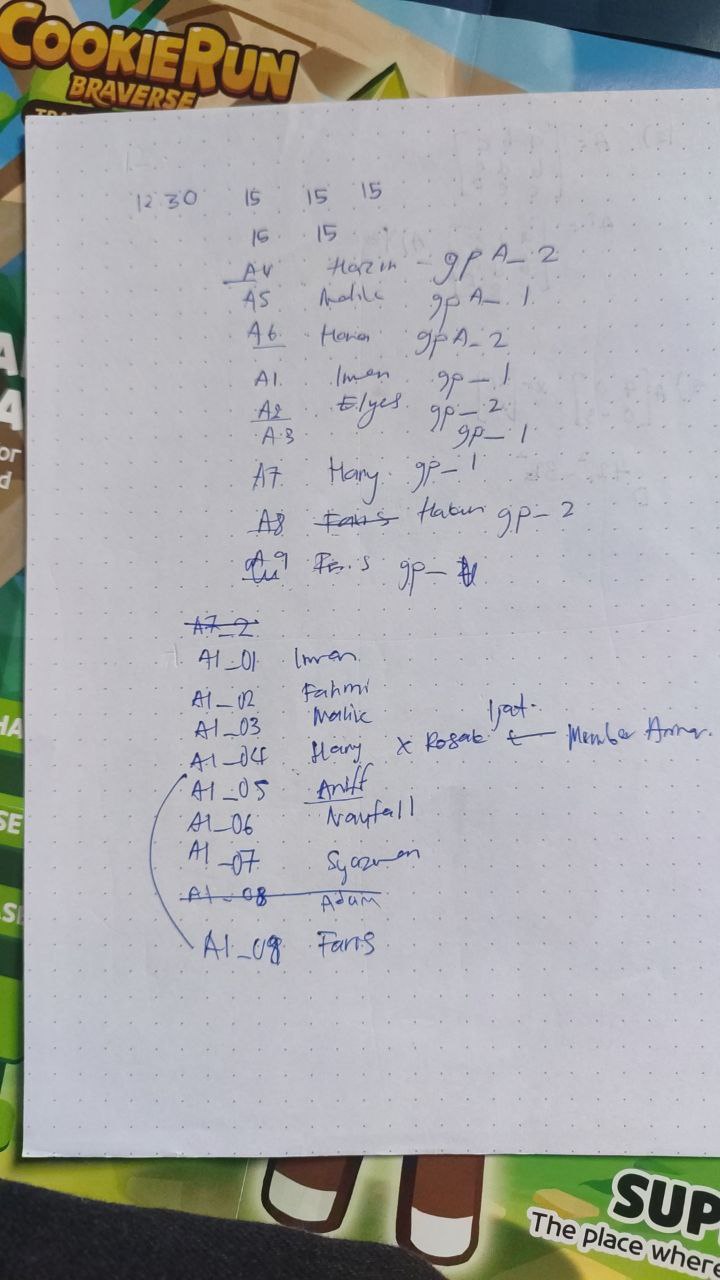 COOKIERUN
BRAVERSE
12 30 15 15 15
15 15
A4 Hazim - gp A_ 2
A5 Malik gp A_ 1
A6 gp A_ 2
A1 Iman gp - 1
A2 Elyes gp - 2
A3 gp - 1
A7 Hany gp - 1
A8 Faris Hakim gp - 2
A9 Faris gp -
A7_2
A1_01 Iman
A1_02 Fahmi
A1_03 Malik
A1_04 Hany x Member
A1_05 Aniff
A1_06 Naufall
A1_07 Syazwan
A1_08 Adam
A1_08 Faris
SUP
The place where